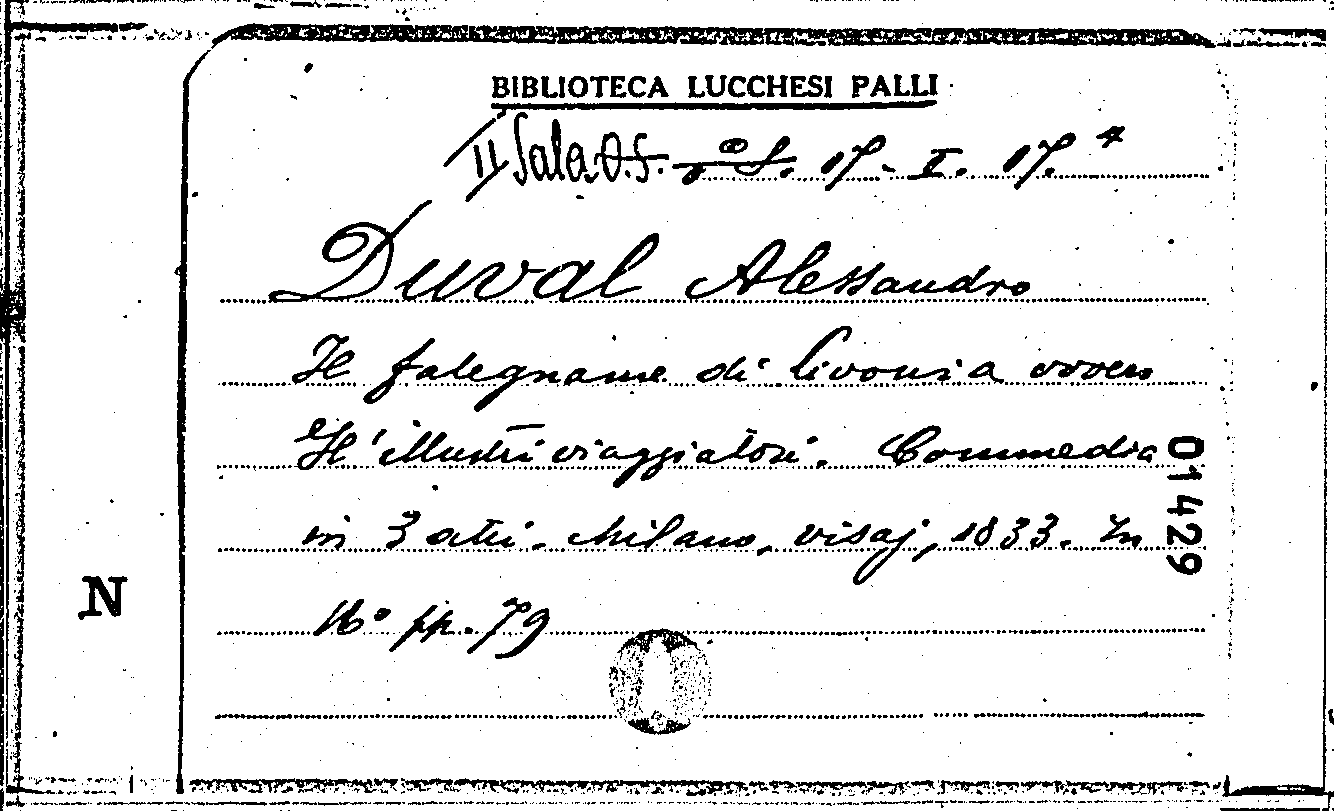 BIBLIOTECA LUCCHESI PALLI
II Sala O.S. 17. I. 17. 4
Duval Alessandro
Il falegname di Livonia ovvero
Gl'illustri viaggiatori. Commedia
in 3 atti. Milano, Visaj, 1833. In
16° pp. 79
01429
N